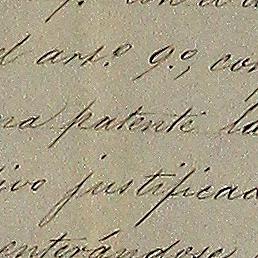 l art.º 9.º, con
na patente la
ivo justificad
enterándose